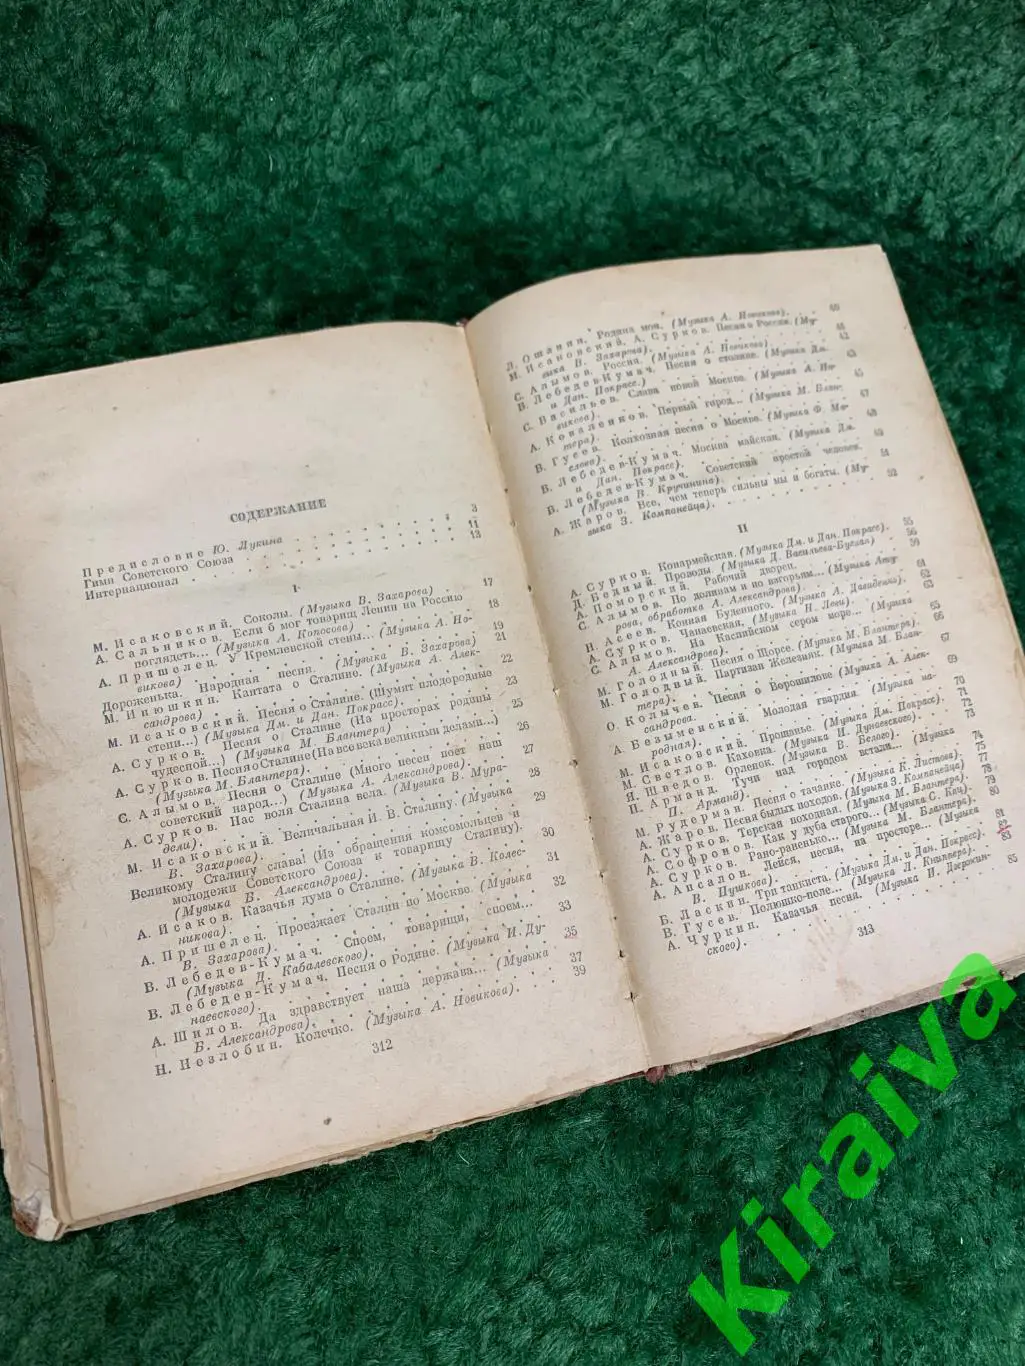 СОДЕРЖАНИЕ
Предисловие Ю. Лукина 3
Гимн Советского Союза 11
Интернационал 13
I
М. Исаковский. Соколы. (Музыка В. Захарова) 17
А. Сальников. Если б мог товарищ Ленин на Россию
поглядеть... (Музыка А. Копосова) 18
А. Пришелец. У Кремлевской стены... (Музыка А. Но-
викова) 19
Дороженька. Народная песня. (Музыка В. Захарова) 21
М. Инюшкин. Кантата о Сталине. (Музыка А. Алек-
сандрова) 22
М. Исаковский. Песня о Сталине. (Шумят плодородные
степи...) (Музыка Дм. и Дан. Покрасс) 23
А. Сурков. Песня о Сталине (На просторах родины
чудесной...) (Музыка М. Блантера) 25
А. Сурков. Песня о Сталине (На все века великими делами...)
(Музыка М. Блантера) 26
С. Алымов. Песня о Сталине (Много песен поет наш
советский народ...) (Музыка А. Александрова) 27
А. Сурков. Нас воля Сталина вела. (Музыка В. Мура-
дели) 28
М. Исаковский. Величальная И. В. Сталину. (Музыка
В. Захарова) 29
Великому Сталину слава! (Из обращения комсомольцев и
молодежи Советского Союза к товарищу Сталину).
(Музыка Б. Александрова) 30
А. Исаков. Казачья дума о Сталине. (Музыка В. Колес-
никова) 31
А. Пришелец. Проезжает Сталин по Москве. (Музыка
В. Захарова) 32
В. Лебедев-Кумач. Споем, товарищи, споем...
(Музыка Д. Кабалевского) 33
В. Лебедев-Кумач. Песня о Родине. (Музыка И. Ду-
наевского) 35
А. Шилов. Да здравствует наша держава... (Музыка
Б. Александрова) 37
Н. Незлобин. Колечко. (Музыка А. Новикова) 39
312
Л. Ошанин. Родина моя. (Музыка А. Новикова) 40
М. Исаковский, А. Сурков. Песня о России. (Му-
зыка В. Захарова) 41
С. Алымов. Россия. (Музыка А. Новикова) 42
В. Лебедев-Кумач. Песня о столице. (Музыка Дм.
и Дан. Покрасс.) 43
С. Васильев. Слава новой Москве. (Музыка А. Но-
викова) 45
А. Коваленков. Первый город... (Музыка М. Блан-
тера) 47
В. Гусев. Колхозная песня о Москве. (Музыка Ф. Ма-
слова) 48
В. Лебедев-Кумач. Москва майская. (Музыка Дм.
и Дан. Покрасс) 49
В. Лебедев-Кумач. Советский простой человек.
(Музыка В. Кручинина) 51
А. Жаров. Все, чем теперь сильны мы и богаты. (Му-
зыка З. Компанейца) 52
II
А. Сурков. Конармейская. (Музыка Дм. и Дан. Покрасс) 55
Д. Бедный. Проводы. (Музыка Д. Васильева-Буглая) 56
А. Поморский. Рабочий дворец 59
С. Алымов. По долинам и по взгорьям... (Музыка Ату-
рова, обработка А. Александрова) 61
Н. Асеев. Конная Буденного. (Музыка А. Давиденко) 62
А. Сурков. Чапаевская. (Музыка Н. Леви) 63
С. Алымов. На Каспийском сером море... (Музыка
А. Александрова) 65
М. Голодный. Песня о Щорсе. (Музыка М. Блантера)
М. Голодный. Партизан Железняк. (Музыка М. Блан-
тера) 67
О. Колычев. Песня о Ворошилове (Музыка А. Алек-
сандрова 69
А. Безыменский. Молодая гвардия. (Музыка на-
родная) 70
М. Исаковский. Прощанье. (Музыка Дм. Покрасс) 71
М. Светлов. Каховка. (Музыка И. Дунаевского) 72
Я. Шведов. Орленок. (Музыка В. Белого) 73
П. Арманд. Тучи над городом встали... (Музыка
П. Арманд) 74
М. Рудерман. Песня о тачанке. (Музыка К. Листова) 75
А. Жаров. Песня былых походов. (Музыка З. Компанейца) 77
А. Сурков. Терская походная. (Музыка М. Блантера) 78
А. Софронов. Как у дуба старого... (Музыка С. Кац) 79
А. Сурков. Рано-раненько... (Музыка М. Блантера) 80
А. Ансалон. Лейся, песня, на просторе... (Музыка
В. Пушкова) 81
Б. Ласкин. Три танкиста. (Музыка Дм. и Дан. Покрасс) 82
В. Гусев. Полюшко-поле... (Музыка Л. Книппера) 83
А. Чуркин. Казачья песня. (Музыка И. Дзержин-
ского) 85
313
Kiraiva